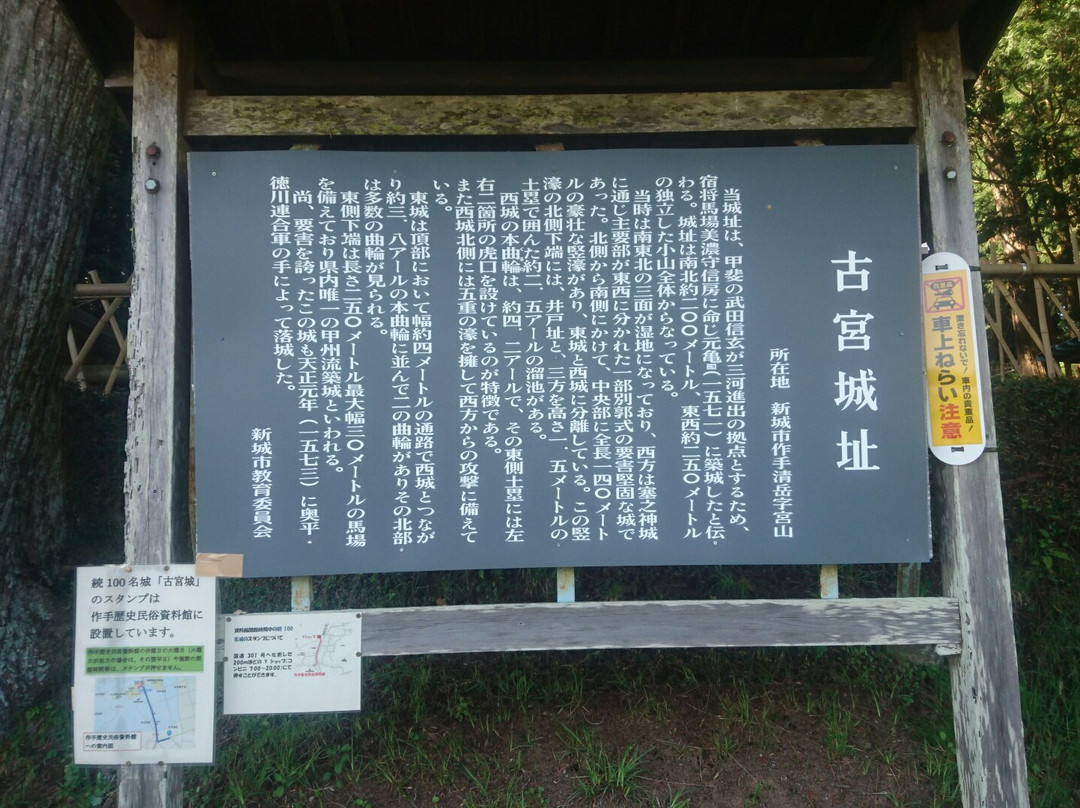 古宮城址
所在地　新城市作手清岳字宮山
当城址は、甲斐の武田信玄が三河進出の拠点とするため、
宿将馬場美濃守信房に命じ元亀二(一五七一)に築城したと伝
わる。城址は南北約二〇〇メートル、東西約二五〇メートル
の独立した小山全体からなっている。
当時は南東北の三面が湿地になっており、西方は塞之神城
に通じ主要部が東西に分かれた一部別郭式の要害堅固な城で
あった。北側から南側にかけて、中央部に全長一四〇メート
ルの豪壮な竪濠があり、東城と西城に分離している。この竪
濠の北側下端には、井戸址と、三方を高さ一．五メートルの
土塁で囲んだ約一．五アールの溜池がある。
西城の本曲輪は、約四．二アールで、その東側土塁には左
右二箇所の虎口を設けているのが特徴である。
また西城北側には五重の濠を擁して西方からの攻撃に備えて
いる。
東城は頂部において幅約四メートルの通路で西城とつなが
り約三．八アールの本曲輪に並んで二の曲輪がありその北部
は多数の曲輪が見られる。
東側下端は長さ二五〇メートル最大幅三〇メートルの馬場
を備えており県内唯一の甲州流築城といわれる。
尚、要害を誇ったこの城も天正元年(一五七三)に奥平・
徳川連合軍の手によって落城した。
新城市教育委員会
置き忘れないで！車内の貴重品！
車上ねらい注意
続100名城「古宮城」
のスタンプは
作手歴史民俗資料館に
設置しています。
作手歴史民俗資料館
への案内図
国道 301 号へを戻した